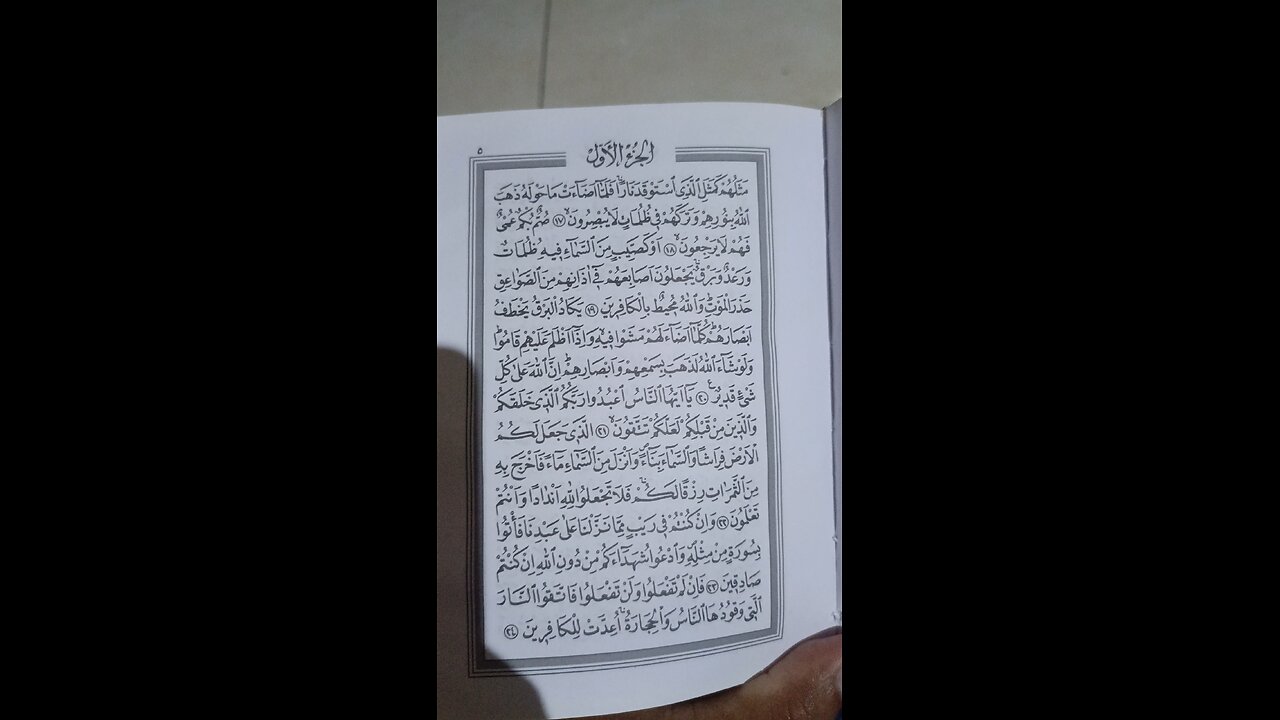 الجزء الأول
٥
مَثَلُهُمْ كَمَثَلِ الَّذِى اسْتَوْقَدَ نَارًاۚ فَلَمَّٓا اَضَٓاءَتْ مَا حَوْلَهُ ذَهَبَ
اللّٰهُ بِنُورِهِمْ وَتَرَكَهُمْ فِى ظُلُمَاتٍ لَا يُبْصِرُونَۙ ﴿١٧﴾ صُمٌّ بُكْمٌ عُمْىٌ
فَهُمْ لَا يَرْجِعُونَۙ ﴿١٨﴾ اَوْ كَصَيِّبٍ مِنَ السَّمَٓاءِ فِيهِ ظُلُمَاتٌ
وَرَعْدٌ وَبَرْقٌۚ يَجْعَلُونَ اَصَابِعَهُمْ فِٓى اٰذَانِهِمْ مِنَ الصَّوَاعِقِ
حَذَرَ الْمَوْتِۜ وَاللّٰهُ مُحِيطٌ بِالْكَافِرِينَ ﴿١٩﴾ يَكَادُ الْبَرْقُ يَخْطَفُ
اَبْصَارَهُمْۜ كُلَّمَٓا اَضَٓاءَ لَهُمْ مَشَوْا فِيهِۙ وَاِذَٓا اَظْلَمَ عَلَيْهِمْ قَامُواۜ
وَلَوْ شَٓاءَ اللّٰهُ لَذَهَبَ بِسَمْعِهِمْ وَاَبْصَارِهِمْۜ اِنَّ اللّٰهَ عَلٰى كُلِّ
شَىْءٍ قَدِيرٌ ﴿٢٠﴾ يَٓا اَيُّهَا النَّاسُ اعْبُدُوا رَبَّكُمُ الَّذِى خَلَقَكُمْ
وَالَّذِينَ مِنْ قَبْلِكُمْ لَعَلَّكُمْ تَتَّقُونَۙ ﴿٢١﴾ الَّذِى جَعَلَ لَكُمُ
الْاَرْضَ فِرَاشًا وَالسَّمَٓاءَ بِنَٓاءًۖ وَاَنْزَلَ مِنَ السَّمَٓاءِ مَٓاءً فَاَخْرَجَ بِهِ
مِنَ الثَّمَرَاتِ رِزْقًا لَكُمْۚ فَلَا تَجْعَلُوا لِلّٰهِ اَنْدَادًا وَاَنْتُمْ
تَعْلَمُونَ ﴿٢٢﴾ وَاِنْ كُنْتُمْ فِى رَيْبٍ مِمَّا نَزَّلْنَا عَلٰى عَبْدِنَا فَأْتُوا
بِسُورَةٍ مِنْ مِثْلِهِۖ وَادْعُوا شُهَدَٓاءَكُمْ مِنْ دُونِ اللّٰهِ اِنْ كُنْتُمْ
صَادِقِينَ ﴿٢٣﴾ فَاِنْ لَمْ تَفْعَلُوا وَلَنْ تَفْعَلُوا فَاتَّقُوا النَّارَ
الَّتِى وَقُودُهَا النَّاسُ وَالْحِجَارَةُۚ اُعِدَّتْ لِلْكَافِرِينَ ﴿٢٤﴾